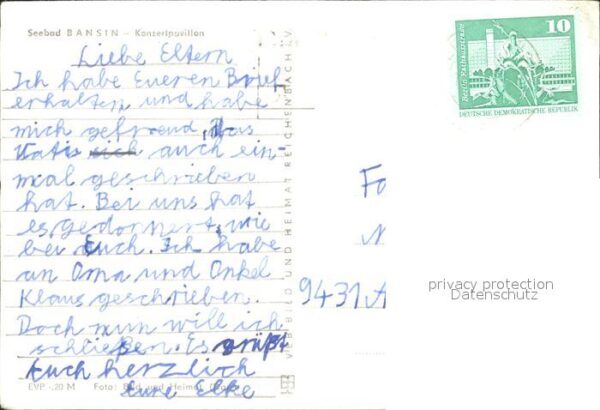 Seebad BANSIN – Konzertpavillon
Liebe Eltern
Ich habe Eueren Brief
erhalten und habe
mich gefreud, das
Katis sich auch ein-
mal geschrieben
hat. Bei uns hat
es gedonnert, wie
bei Euch. Ich habe
an Oma und Onkel
Klaus geschrieben.
Doch nun will ich
schließen. Es grüßt
Euch herzlich
eure Elke
EVP -,20 M Foto: Bild und Heimat
VEB BILD UND HEIMAT REICHENBACH I.V.
10
DEUTSCHE DEMOKRATISCHE REPUBLIK
9431
privacy protection
Datenschutz